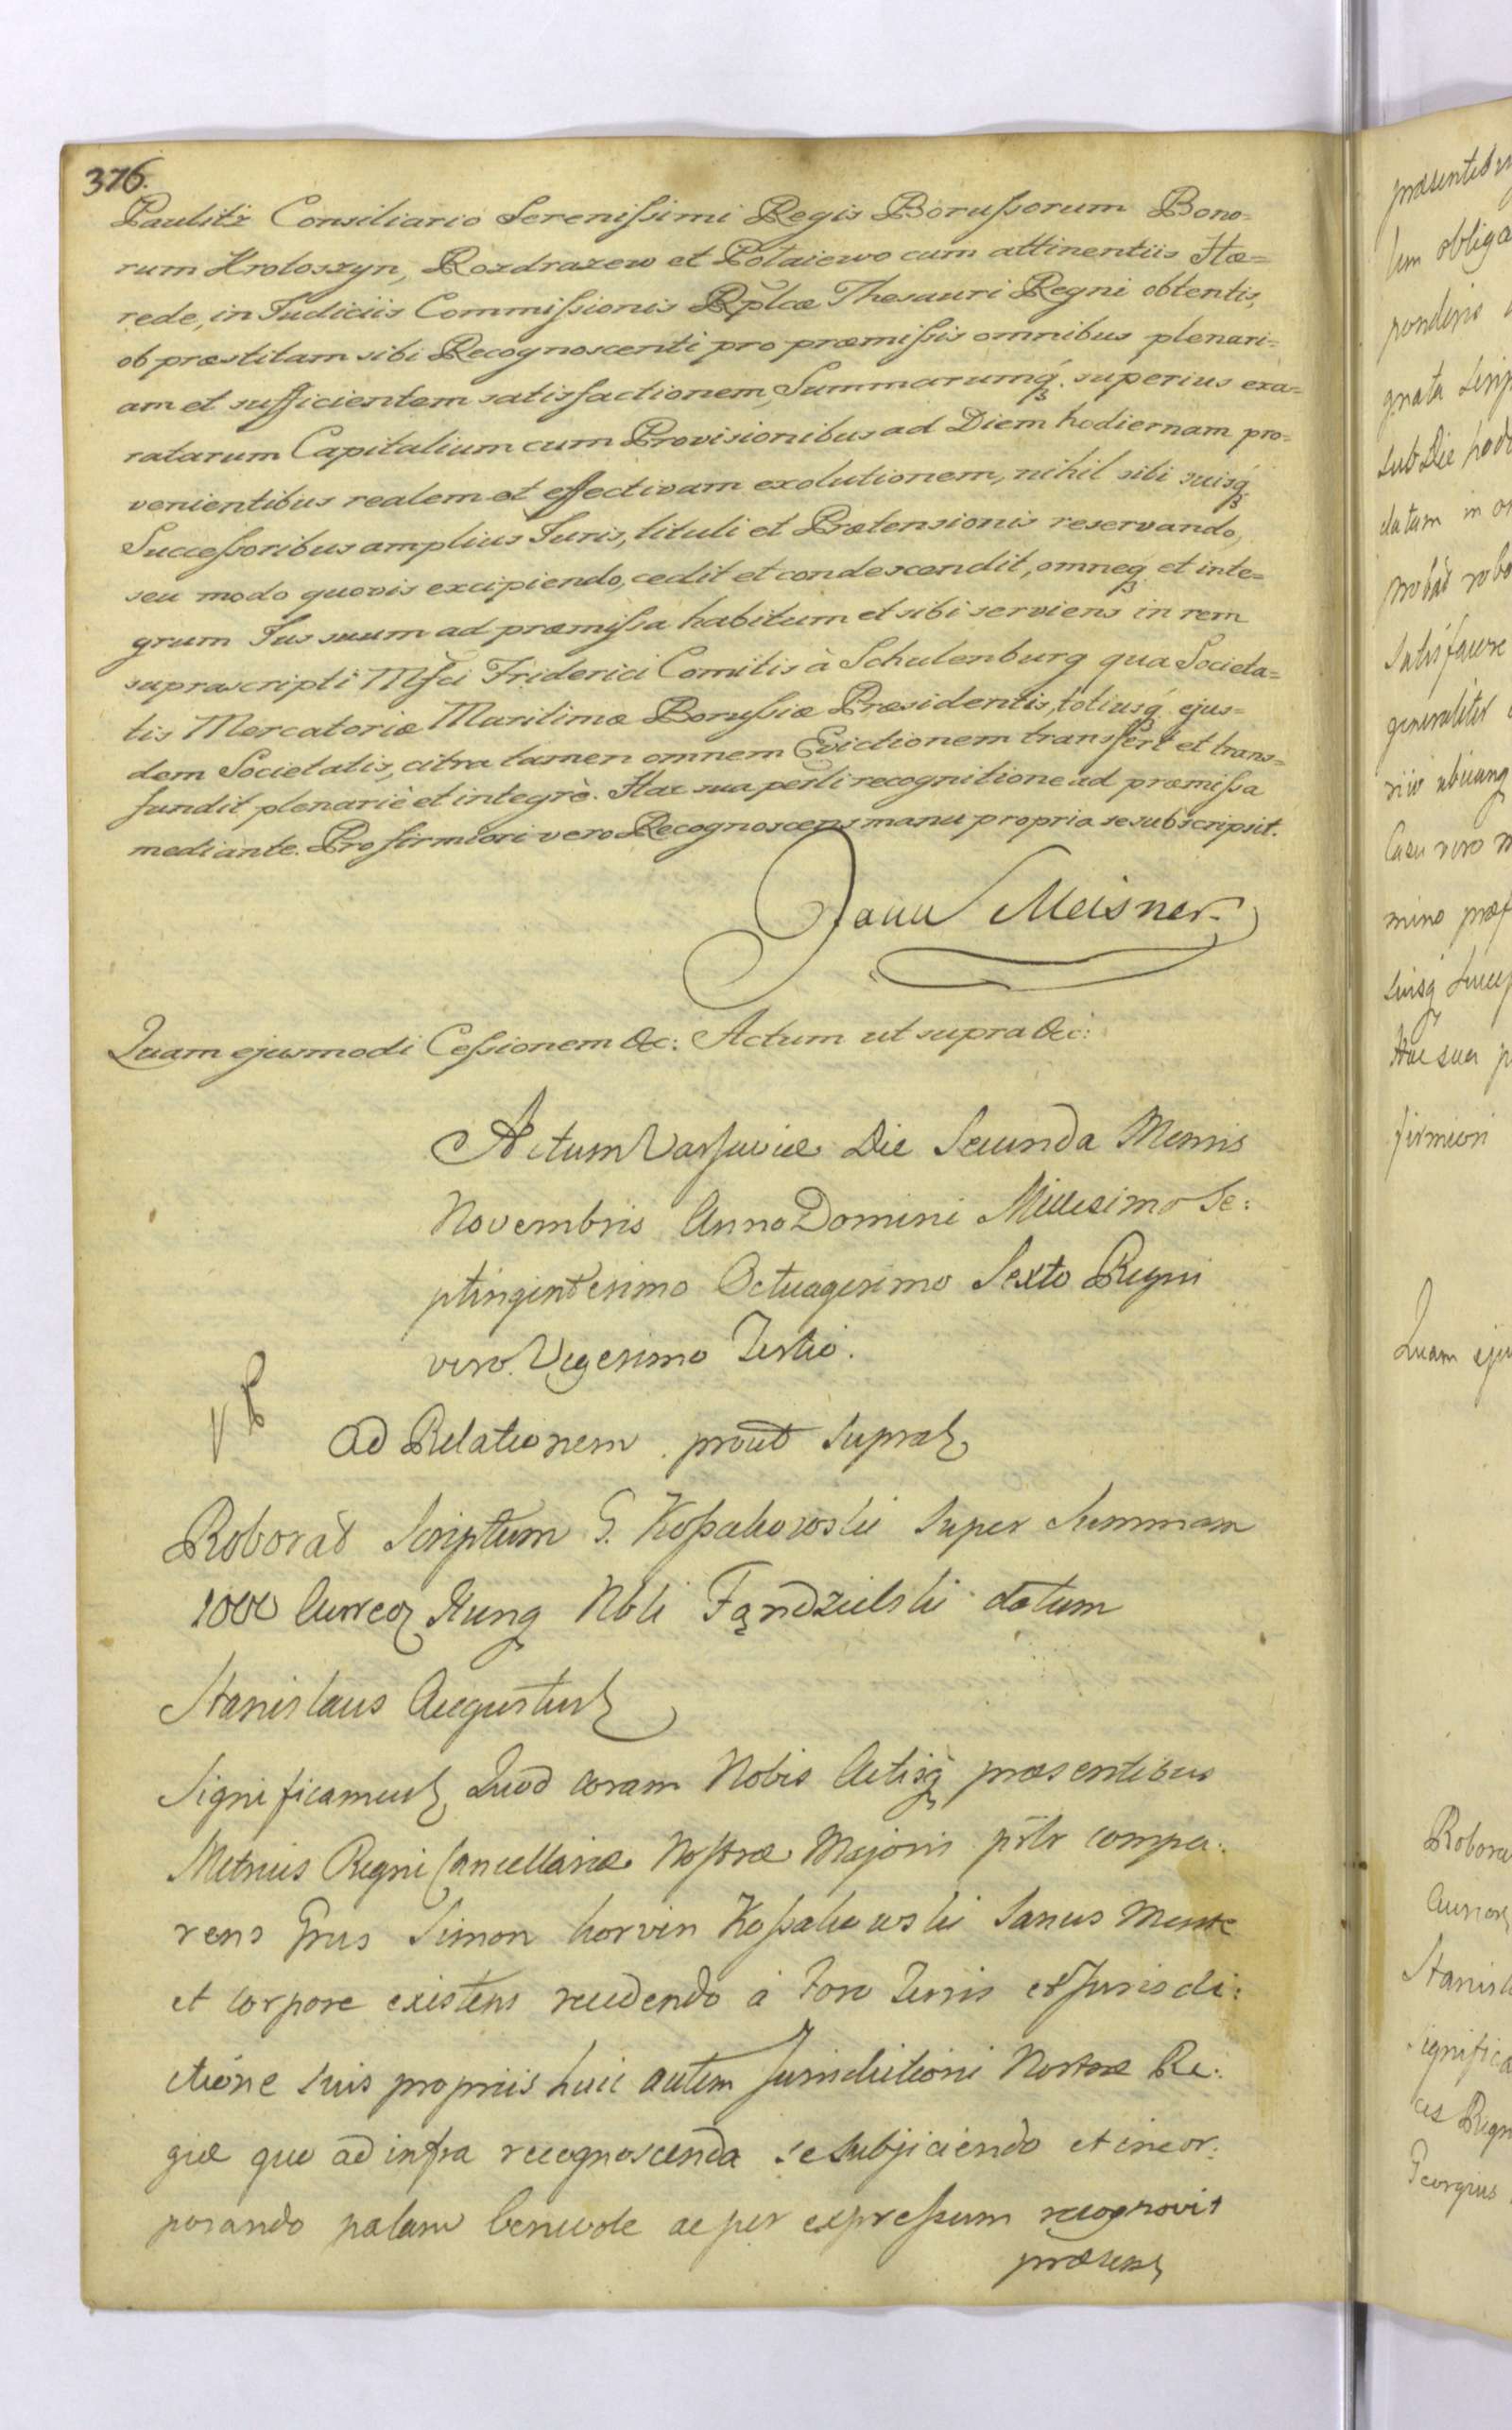 376.
Paulitz Consiliario Serenissimi Regis Borussorum Bono=
rum Krotoszyn, Rozdrazew et Potaiewo cum attinentiis Hæ=
rede, in Judiciis Commissionis Rplcæ Thesauri Regni obtentis,
ob præstitam sibi Recognoscenti pro præmissis omnibus plenari=
am et sufficientem satisfactionem, Summarumq. superius exa=
ratarum Capitalium cum Provisionibus ad Diem hodiernam pro=
venientibus realem et effectivam exolutionem, nihil sibi suisq
Successoribus amplius Juris, tituli et Prætensionis reservando,
seu modo quovis excipiendo, cedit et condescendit, omneq et inte=
grum Jus suum ad præmissa habitum et sibi serviens in rem
suprascripti Mfci Friderici Comitis à Schulenburg qua Societa=
tis Mercatoriæ Maritimæ Borussiæ Præsidentis, totiusq ejus=
dem Societatis, citra tamen omnem Evictionem transfert et trans=
fundit plenariè et integrè. Hac sua perli recognitione ad præmissa
mediante. Pro firmiori vero Recognoscens manu propria se subscripsit.
Meisner.
Quam ejusmodi Cessionem &c: Actum ut supra &c:
Actum Varsaviæ Die Secunda Mensis
Novembris Anno Domini Millesimo Se:
ptingintesimo Octuagesimo Sexto Regni
vero Vigesimo Tertio.
Ad Relationem prout supra
Roborat Scriptum G. Kossakowski super Summam
1000 Aureor Hung Nbli Fąndzielski datum
Stanislaus Augustus
Significamus Quod coram Nobis Actisq præsentibus
Metrices Regni Cancellariæ Nostræ Majoris psltr compa:
rens Grus Simon Korvin Kossakowski Sanus Mente
et corpore existens recedendo à Foro Terris et Jurisdi:
ctione suis propriis huic autem Jurisdictioni Nostræ Re:
giæ quo ad infra recognoscenda se subjiciendo et incor:
porando palam benevole ac per expressum recognovit
præsens
præsentib
obliga
ponderis
gnata Scrip
sub Die hod
datum in
probat robo
Satisfacere
generaliter
Casu vero
mino præf
suisq Succes
Hac sua p
firmiori
Quam eju
Robora
Aureor
Stanisla
ignifica
ces Regn
Georgius